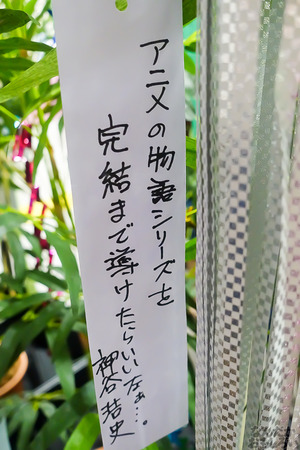 アニメの物語シリーズを
完結まで導けたらいいなぁ…。
神谷浩史